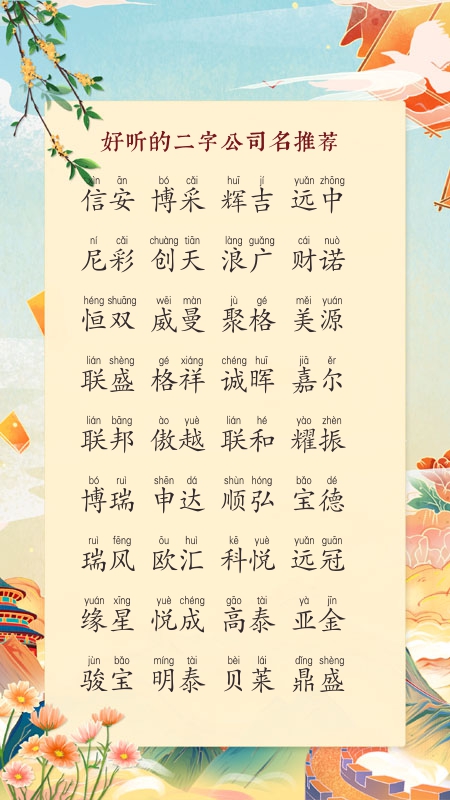 好听的二字公司名推荐
xìn ān bó cǎi huī jí yuǎn zhōng
信安 博采 辉吉 远中
ní cǎi chuàng tiān làng guǎng cái nuò
尼彩 创天 浪广 财诺
héng shuāng wēi màn jù gé měi yuán
恒双 威曼 聚格 美源
lián shèng gé xiáng chéng huī jiā ěr
联盛 格祥 诚晖 嘉尔
lián bāng ào yuè lián hé yào zhèn
联邦 傲越 联和 耀振
bó ruì shēn dá shùn hóng bǎo dé
博瑞 申达 顺弘 宝德
ruì fēng ōu huì kē yuè yuǎn guān
瑞风 欧汇 科悦 远冠
yuán xīng yuè chéng gāo tài yà jīn
缘星 悦成 高泰 亚金
jùn bǎo míng tài bèi lái dǐng shèng
骏宝 明泰 贝莱 鼎盛